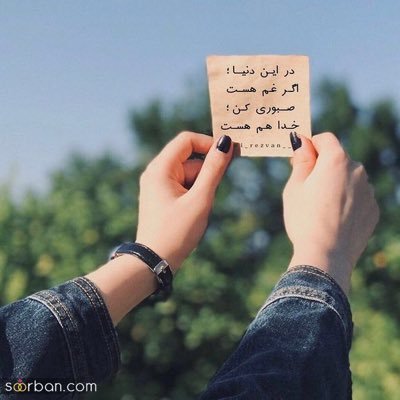 در این دنیا؛
اگر غم هست
صبوری کن؛
خدا هم هست
i_rezvan_
soorban.com